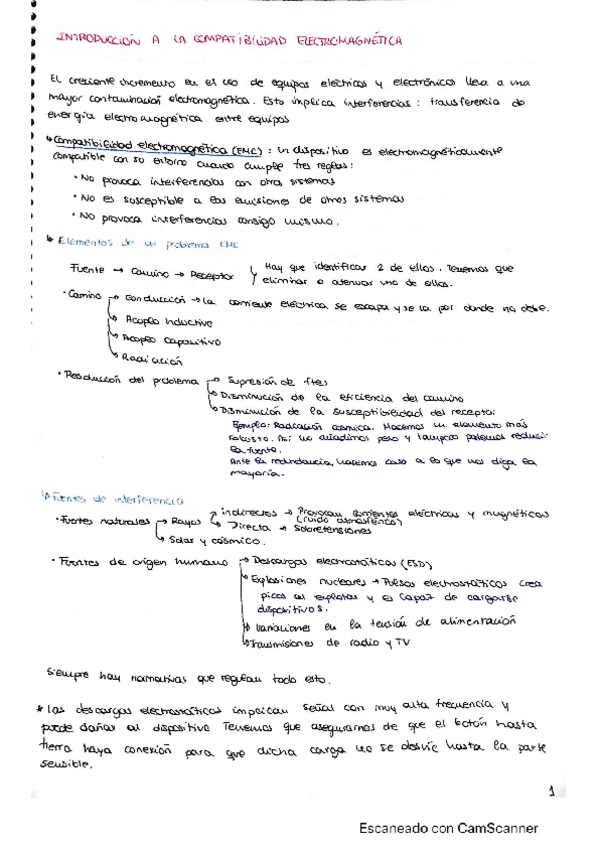 INTRODUCCIÓN A LA COMPATIBILIDAD ELECTROMAGNÉTICA
El creciente incremento en el uso de equipos eléctricos y electrónicos lleva a una
mayor contaminación electromagnética. Esto implica interferencias: transferencia de
energía electromagnética entre equipos
↳ Compatibilidad electromagnética (EMC): un dispositivo es electromagnéticamente
compatible con su entorno cuando cumple tres reglas:
· No provoca interferencias con otros sistemas
· No es susceptible a las emisiones de otros sistemas
· No provoca interferencias consigo mismo.
↳ Elementos de un problema EMC
Fuente → Camino → Receptor } Hay que identificar 2 de ellos. Tenemos que
eliminar o atenuar uno de ellos.
· Camino → Conducción → la corriente eléctrica se escapa y se va por donde no debe.
→ Acoplo inductivo
→ Acoplo capacitivo
→ Radiación
· Resolución del problema → Supresión de ftes
→ Disminución de la eficiencia del camino
→ Disminución de la susceptibilidad del receptor
Ejemplo: Radiación cósmica. Hacemos un elemento más
robusto. Así no añadimos peso y tampoco podemos reducir
la fuente.
Ante la redundancia, hacemos caso a lo que nos diga la
mayoría.
↳ Fuentes de interferencia
· Fuentes naturales → Rayos → indirectos → Provocan corrientes eléctricas y magnéticas
(ruido atmosférico)
→ Directa → Sobretensiones
→ Solar y cósmico.
· Fuentes de origen humano → Descargas electrostáticas (ESD)
→ Explosiones nucleares → Pulsos electrostáticos crea
picos al explotar y es capaz de cargarse
dispositivos.
→ Variaciones en la tensión de alimentación
→ Transmisiones de radio y TV
Siempre hay normativas que regulan todo esto.
* Las descargas electrostáticas implican señal con muy alta frecuencia y
puede dañar al dispositivo. Tenemos que asegurarnos de que el botón hasta
tierra haya conexión para que dicha carga no se desvíe hasta la parte
sensible.
1
Escaneado con CamScanner